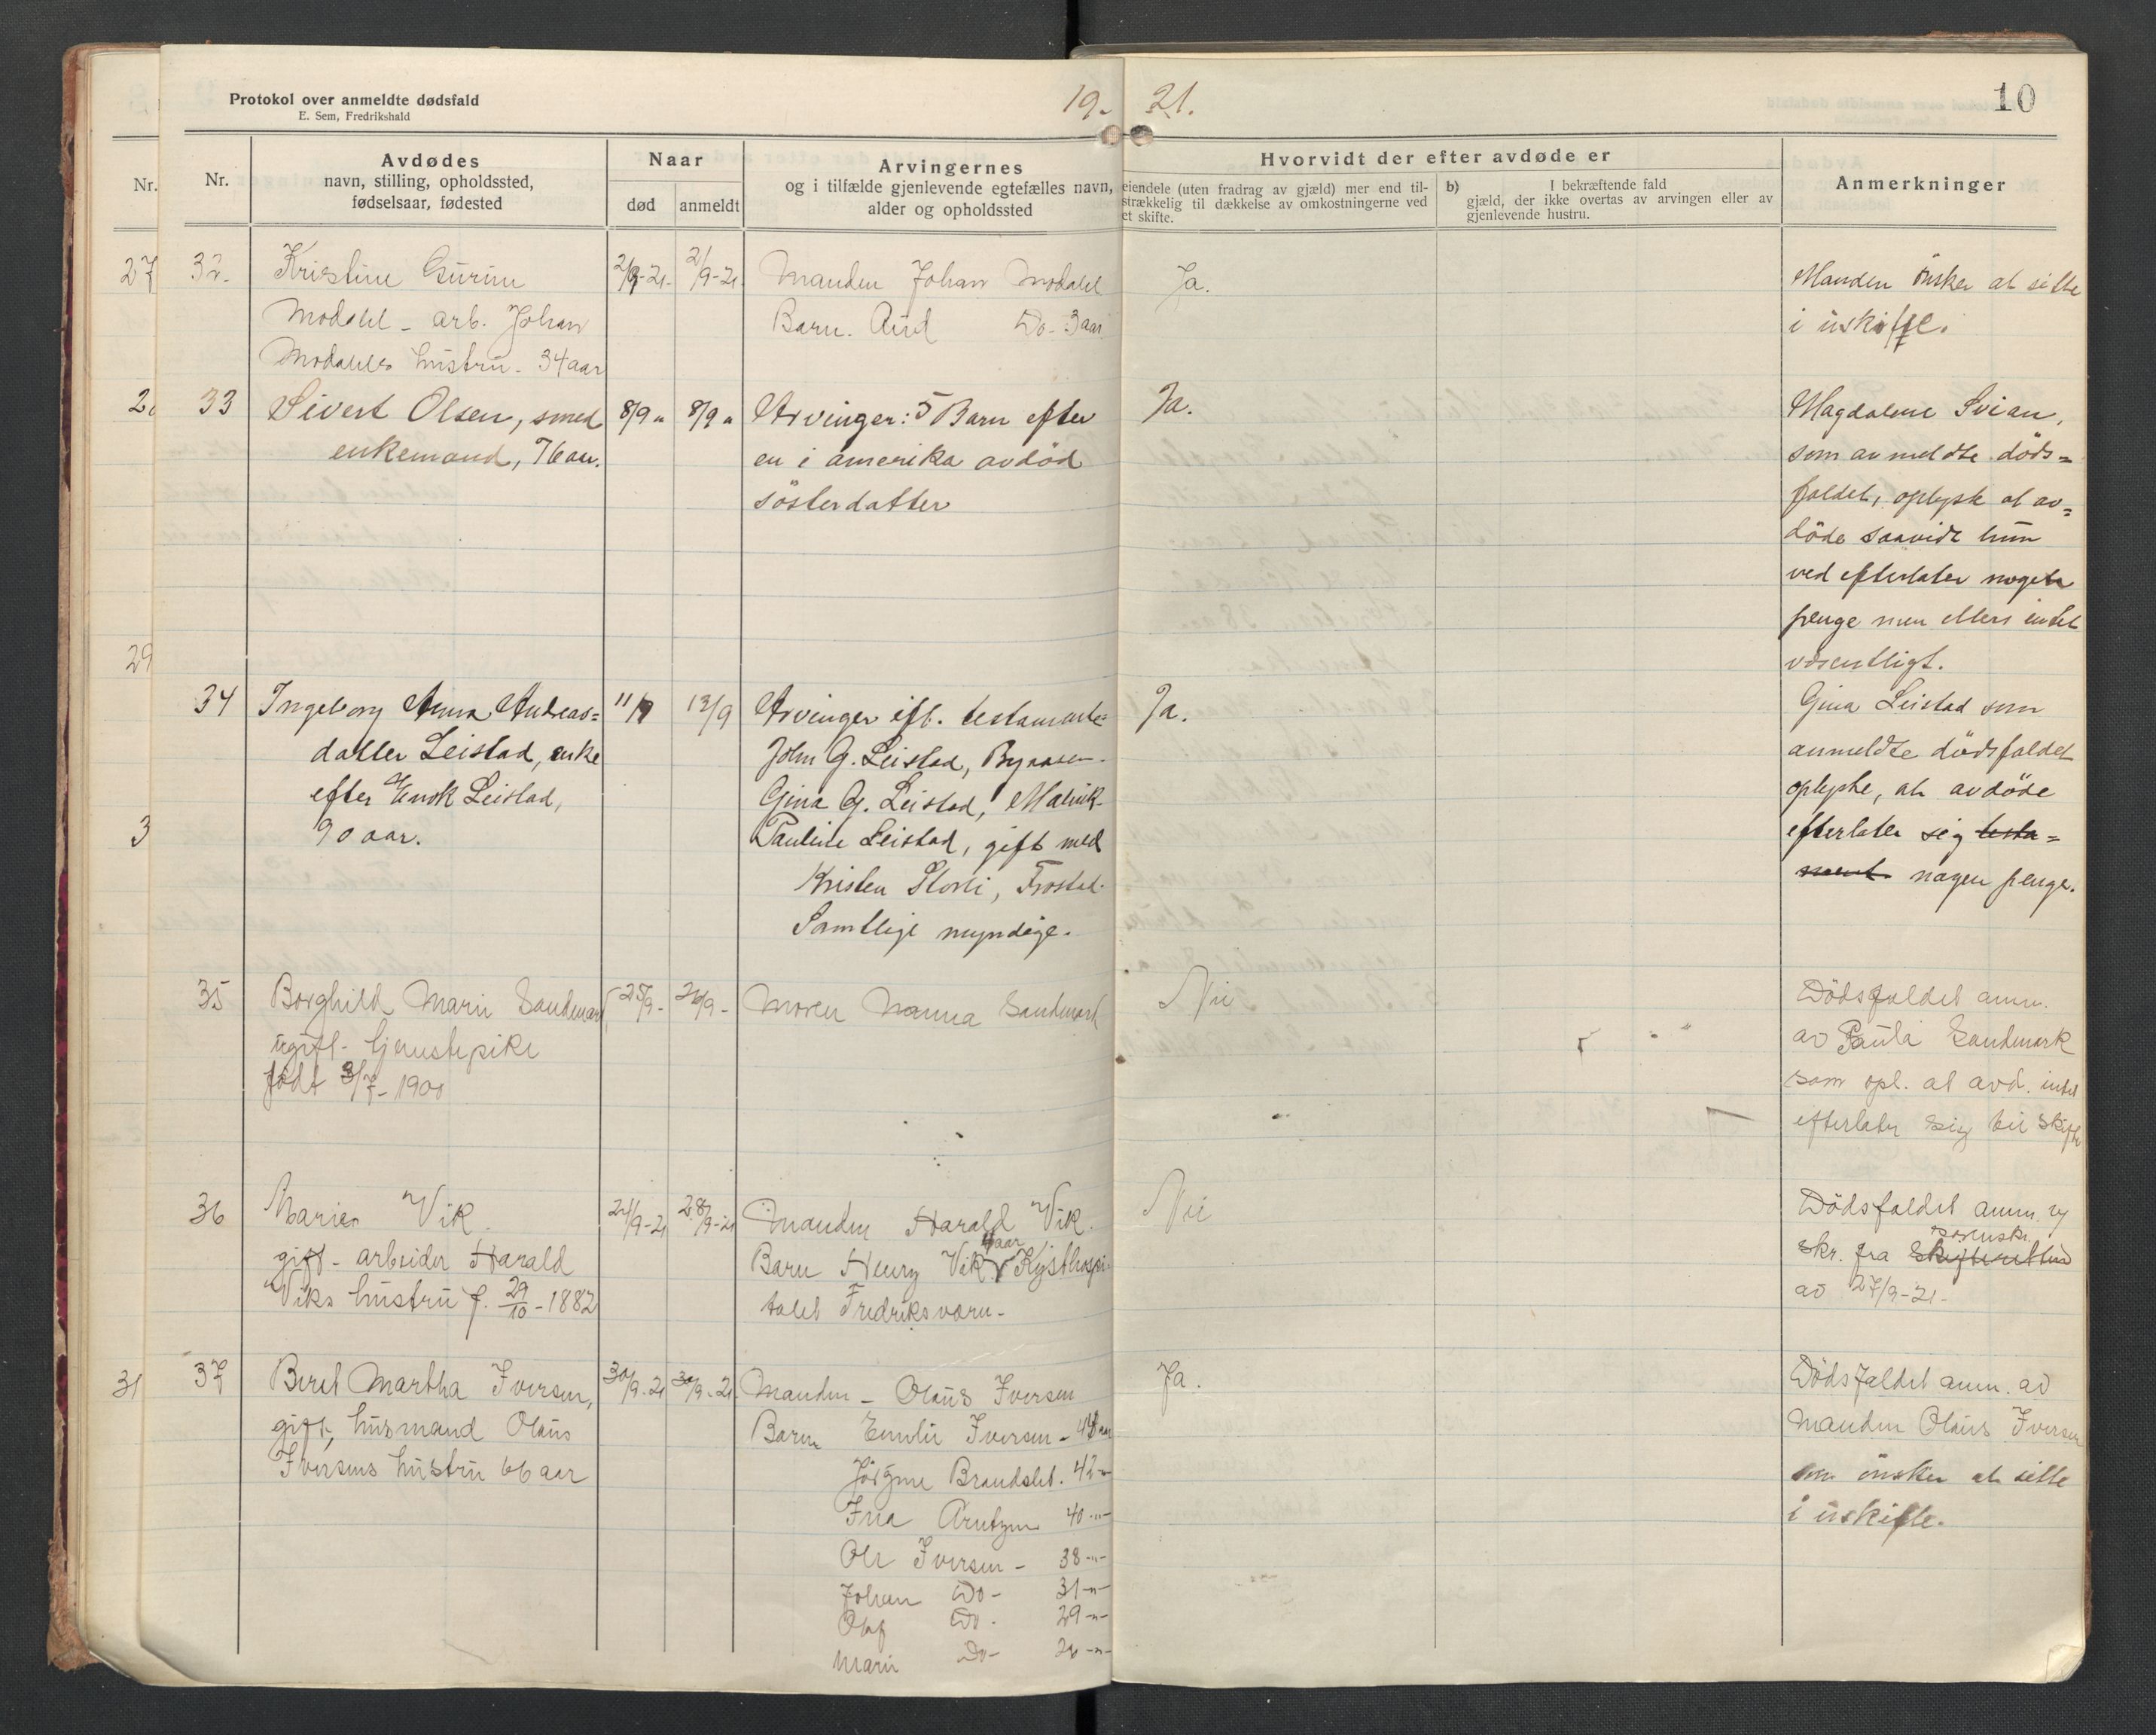 Protokol over anmeldte dødsfald
E. Sem, Fredrikshald
19- 21.
10
Nr.
Nr.
Avdødes
navn, stilling, opholdssted,
fødselsaar, fødested
Naar
død
anmeldt
Arvingernes
og i tilfælde gjenlevende egtefælles navn,
alder og opholdssted
Hvorvidt der efter avdøde er
eiendele (uten fradrag av gjæld) mer end til-
strækkelig til dækkelse av omkostningerne ved
et skifte.
b)
I bekræftende fald
gjæld, der ikke overtas av arvingen eller av
gjenlevende hustru.
Anmerkninger
27
29
3
31
32.
Kristine Gurine
Modahl - arb. Johan
Modahls hustru - 34 aar
2/9-21.
2/9-21.
Manden Johan Modahl
Barn. Aud Do- 3 aar
Ja.
Manden önsker at sitte
i uskifte.
33
Sivert Olsen, smed
enkemand, 76 aar.
8/9 "
8/9 "
Arvinger: 5 Barn efter
en i amerika avdöd
sösterdatter
Ja.
Magdalene Svian,
som anmeldte döds=
faldet, oplyste at av=
döde saavidt hun
ved efterlater noget
penge men ellers intet
væsentligt.
34
Ingeborg Anna Andreas=
datter Leistad, enke
efter Enok Leistad,
90 aar.
11/9
12/9
Arvinger ifl. testamente=
John G. Leistad, Bynesen-
Gina G. Leistad, Malvik-
Pauline Leistad, gift med
Kristen Storli, Frosta.
Samtlige myndige.
Ja.
Gina Leistad som
anmeldte dödsfaldet
oplyste, at avdöde
efterlater sig testa=
ment nogen penge.
35
Borghild Marie Sandmark,
ugift tjenestepike
födt 3/7-1900
25/9-
26/9-
Moren Nanna Sandmark
Nei
Dödsfaldet anm.
av Paula Sandmark
som opl. at avd. intet
efterlater sig til skifte
36
Marie Vik
gift - arbeider Harald
Viks hustru f. 29/10-1882
24/9-21
28/9-21
Manden Harald Vik.
aar
Barn Henry Vik Kysthospi-
talet Fredriksværn-
Nei
Dödsfaldet anm. v/
skr. fra skifteretten
av 27/9-21-
37
Beret Martha Iversen,
gift, husmand Olaus
Iversens hustru 66 aar
30/9-21
30/9-21.
Manden - Olaus Iversen
Barn Emilie Iversen - 44 aar
Jörgine Brandslet. 42-"-
Ina Arntzen 40-"-
Ole Iversen - 38-"-
Johan Do- 31-"-
Olaf Do- 29-"-
Marie Do- 26-"-
Ja.
Dödsfaldet anm. av
manden Olaus Iversen
som önsker at sitte
i uskifte.